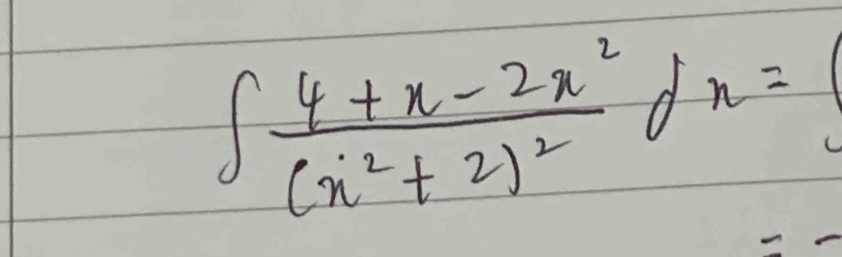 ∫ (4 + x - 2x²) / (x² + 2)² dx = (
= -